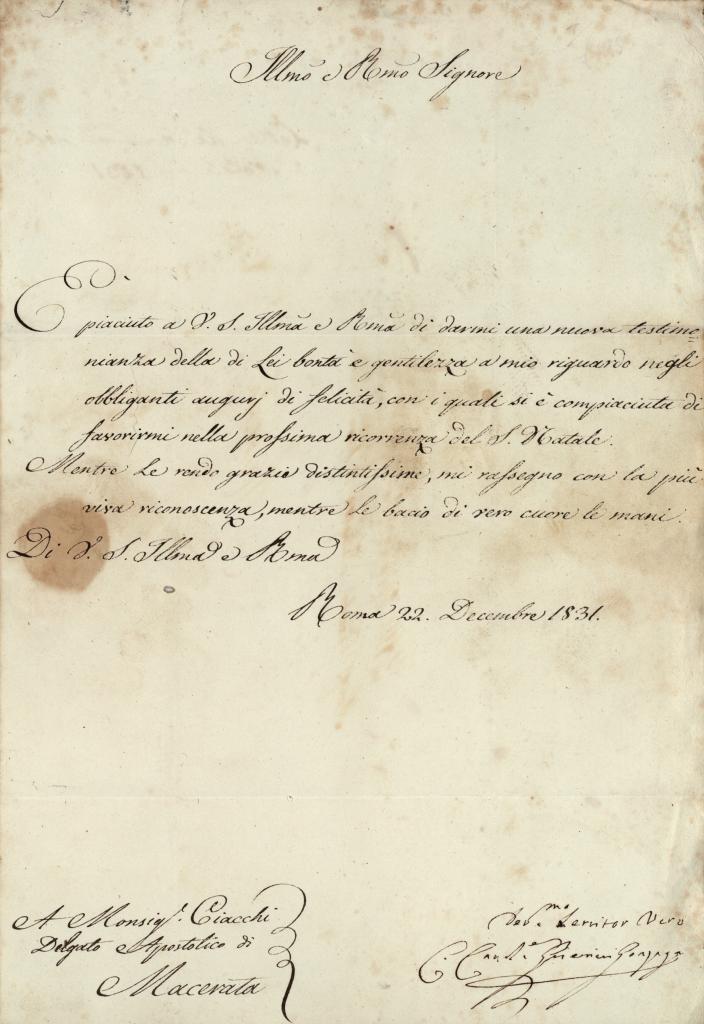 Illmõ e Rmõ Signore
E piaciuto a V. S. Illmã e Rmã di darmi una nuova testimo=
nianza della di Lei bontà e gentilezza a mio riguardo negli
obbliganti augurj di felicità, con i quali si è compiaciuta di
favorirmi nella prossima ricorrenza del S. Natale.
Mentre Le rendo grazie distintissime, mi rassegno con la più
viva riconoscenza, mentre Le bacio di vero cuore le mani.
Di V. S. Illma e Rma
Roma 22. Decembre 1831.
A Monsigr. Ciacchi
Delgato Apostolico di
Macerata
Devmo Servitor Vero
C. Gonzaga